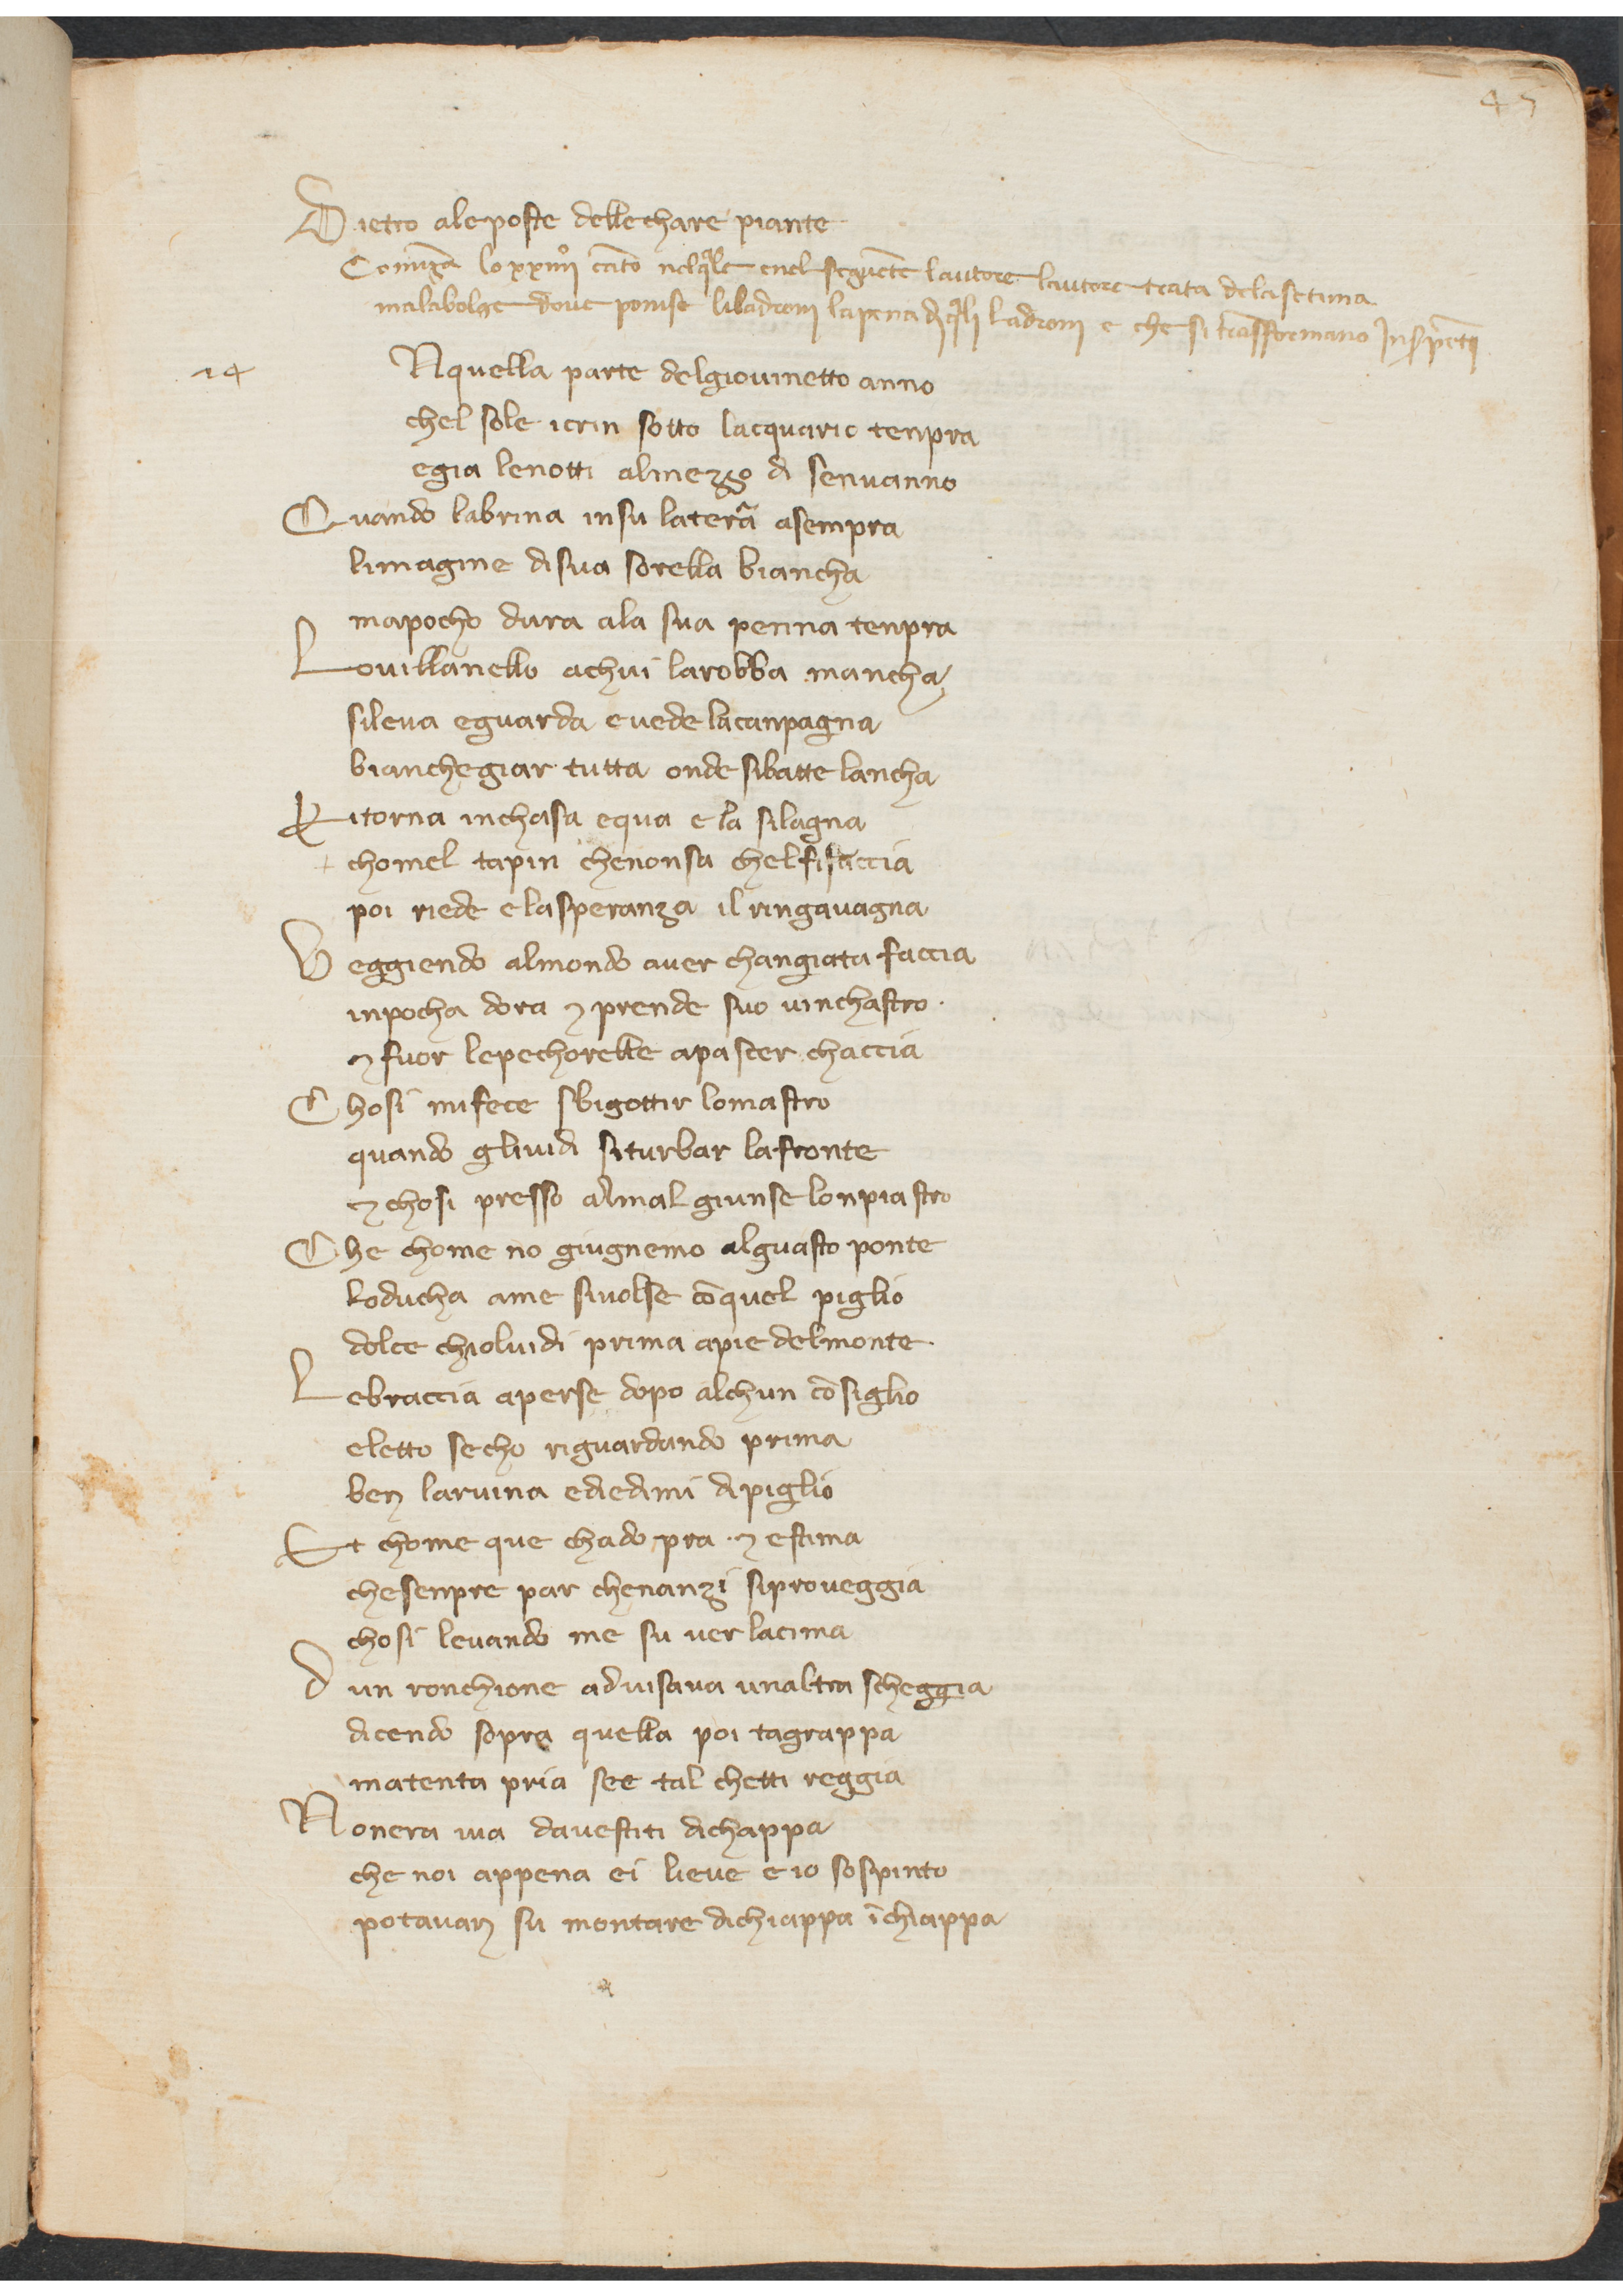 45
Dietro aleposte dellechare piante
Cominza lo xxiiijº cāto nelq̄le enel seguēte lautore lautore trata dela setima
malabolge doue ponise liladronj lapena d q̄li Ladronj e che si trāsformano Jn s̄pētj
24
Nquella parte delgiouinetto anno
chel sole icrin sotto lacquario tenpra
egia lenotti almezzo di senuanno
Quando labrina insu laterā asempra
limagine disua sorella biancha
mapocho dura ala sua penna tenpra
Louillanello achui larobba mancha
sileua eguarda euede lacanpagna
bianchegiar tutta onde sibatte lancha
Ritorna inchasa equa e la silagna
chomel tapin chenonsa chelfisaccia
poi riede elasperanza il ringauagna
Veggiendo almondo auer changiata faccia
inpocha dora ⁊ prende suo uinchastro
⁊ fuor lepechorelle apascer chaccia
Chosi mifece sbigottir lomastro
quando gliuidi siturbar lafronte
⁊ chosi presso almal giunse lonpiastro
Che chome no giugnemo alguasto ponte
loducha ame siuolse cōquel piglio
dolce chioluidi prima apie delmonte
Lebraccia aperse dopo alchun cōsiglio
eletto secho riguardando prima
ben laruina ediedimi dipiglio
Et chome que chadopra ⁊ estima
chesenpre par chenanzi siproueggia
chosi leuando me su uer lacima
dun ronchione aduisaua unaltra scheggia
dicendo sopra quella poi tagrappa
matenta pria see tal chetti reggia
Nonera uia dauestiti dichappa
che noi appena ei lieue e io sospinto
potauan su montare dichiappa īchiappa